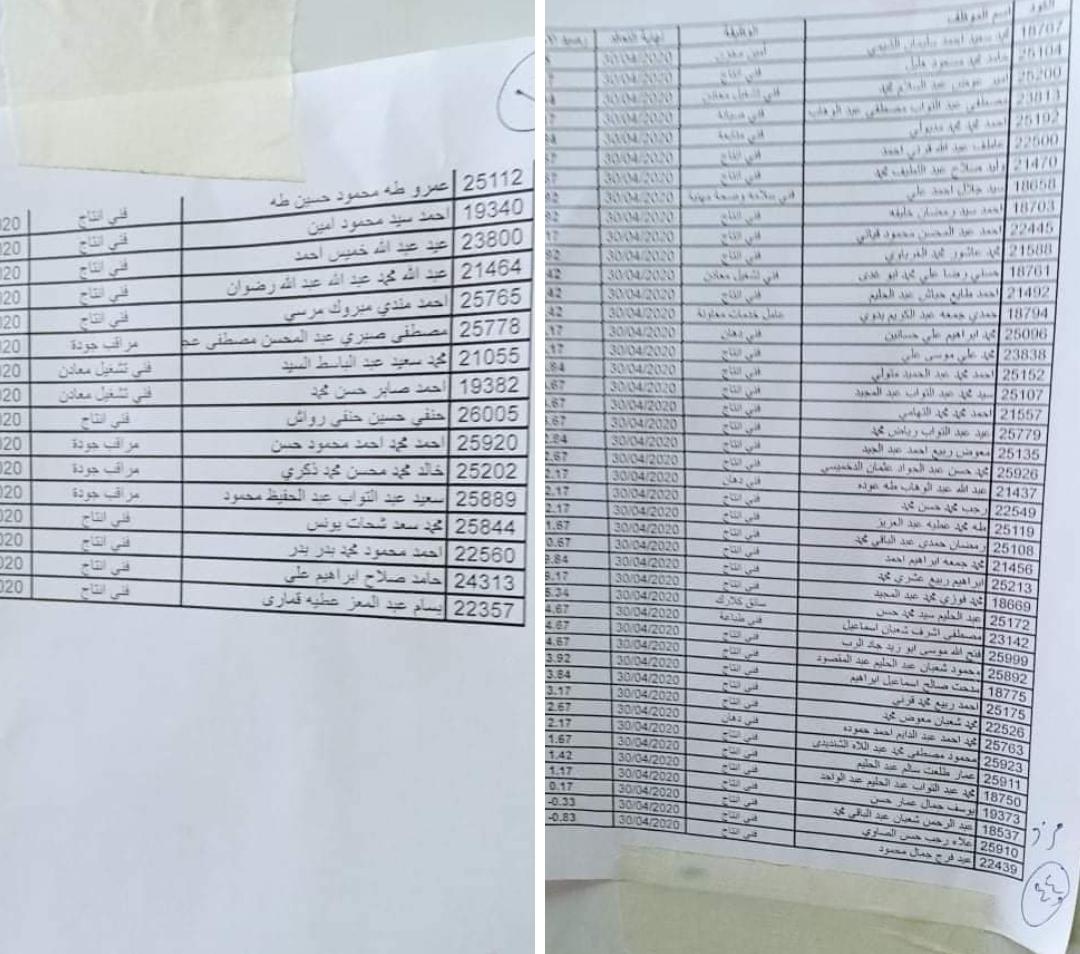 25112 عمرو طه محمود حسين طه فني انتاج 020
19340 احمد سيد محمود امين فني انتاج 020
23800 عيد عبد الله خميس احمد فني انتاج 020
21464 عبد الله محمد عبد الله عبد الله رضوان فني انتاج 020
25765 احمد مندي مبروك مرسي فني انتاج 020
25778 مصطفى صبري عبد المحسن مصطفى عبد مراقب جودة 020
21055 محمد سعيد عبد الباسط السيد فني تشغيل معادن 020
19382 احمد صابر حسن محمد فني تشغيل معادن 020
26005 حنفي حسين حنفي رواش فني انتاج 020
25920 احمد محمد احمد محمود حسن مراقب جودة 020
25202 خالد محمد محسن محمد ذكري مراقب جودة 020
25889 سعيد عبد التواب عبد الحفيظ محمود مراقب جودة 020
25844 محمد سعد شحات يونس فني انتاج 020
22560 احمد محمود محمد بدر بدر فني انتاج 020
24313 حامد صلاح ابراهيم على فني انتاج 020
22357 بسام عبد المعز عطيه قمارى فني انتاج 020
الكود اسم الموظف الوظيفة نهاية التعاقد رصيد
18707 محمد سعيد احمد سليمان 30/04/2020
25104 حامد محمد مسعود خليل فني انتاج 30/04/2020
25200 عوض عبد السلام محمد فني تشغيل معادن 30/04/2020
23813 مصطفى عبد التواب مصطفى عبد الوهاب فني صيانة 30/04/2020
25192 احمد محمد محمد فني 30/04/2020
22500 عاطف عبد الله قرني احمد فني انتاج 30/04/2020
21470 وليد صلاح عبد اللطيف محمد فني انتاج 30/04/2020
18658 سيد جلال احمد علي فني سلامة وصحة مهنية 30/04/2020
18703 احمد سيد رمضان خليفه فني انتاج 30/04/2020
22445 احمد عبد المحسن محمود فني انتاج 30/04/2020
21588 محمد عاشور محمد فني انتاج 30/04/2020
18761 رضا علي محمد ابو فني تشغيل معادن 30/04/2020
21492 احمد طايع عبد الحليم فني انتاج 30/04/2020
18794 حمدي جمعه عبد الكريم بدوي عامل خدمات معاونة 30/04/2020
25096 محمد ابراهيم علي حسانين فني دهان 30/04/2020
23838 محمد علي موسى علي فني انتاج 30/04/2020
25152 احمد محمد عبد الحميد متولي فني انتاج 30/04/2020
25107 سيد محمد عبد التواب عبد المجيد فني انتاج 30/04/2020
21557 احمد محمد محمد التهامي فني انتاج 30/04/2020
25779 عيد عبد التواب رياض محمد فني انتاج 30/04/2020
25135 معوض ربيع احمد عبد الجيد فني انتاج 30/04/2020
25926 محمد حسن عبد الجواد عثمان فني انتاج 30/04/2020
21437 عبد الله عبد الوهاب طه عوده فني دهان 30/04/2020
22549 رجب محمد حسن محمد فني انتاج 30/04/2020
25119 طه محمد عطيه عبد العزيز فني انتاج 30/04/2020
25108 رمضان حمدي عبد الباقي محمد فني انتاج 30/04/2020
21456 محمد جمعه ابراهيم احمد فني انتاج 30/04/2020
25213 ابراهيم ربيع عشري محمد فني انتاج 30/04/2020
18669 محمد فوزي محمد عبد المجيد فني انتاج 30/04/2020
25172 عبد الحليم سيد محمد حسن سائق كلارك 30/04/2020
23142 مصطفى اشرف شعبان اسماعيل فني طباعة 30/04/2020
25999 فتح الله موسى ابو زيد جاد الرب فني انتاج 30/04/2020
25892 محمود شعبان عبد الحليم عبد المقصود فني انتاج 30/04/2020 3.92
18775 مدحت صالح اسماعيل ابراهيم فني انتاج 30/04/2020 3.84
25175 احمد ربيع محمد قرني فني انتاج 30/04/2020 3.17
22526 محمد شعبان معوض محمد فني انتاج 30/04/2020 2.67
25763 محمد احمد عبد الدايم احمد حموده فني دهان 30/04/2020 2.17
25923 محمود مصطفى محمد عبد اللاه فني انتاج 30/04/2020 1.67
25911 عمار طلعت سالم عبد الحليم فني انتاج 30/04/2020 1.42
18750 محمد عبد التواب عبد الحليم عبد الواحد فني انتاج 30/04/2020 1.17
19373 يوسف جمال عمار حسن فني انتاج 30/04/2020 0.17
18537 عبد الرحمن شعبان عبد الباقي محمد فني انتاج 30/04/2020 -0.33
25910 علاء رجب حسن الصاوي فني انتاج 30/04/2020 -0.83
22439 عيد فرج جمال محمود فني انتاج